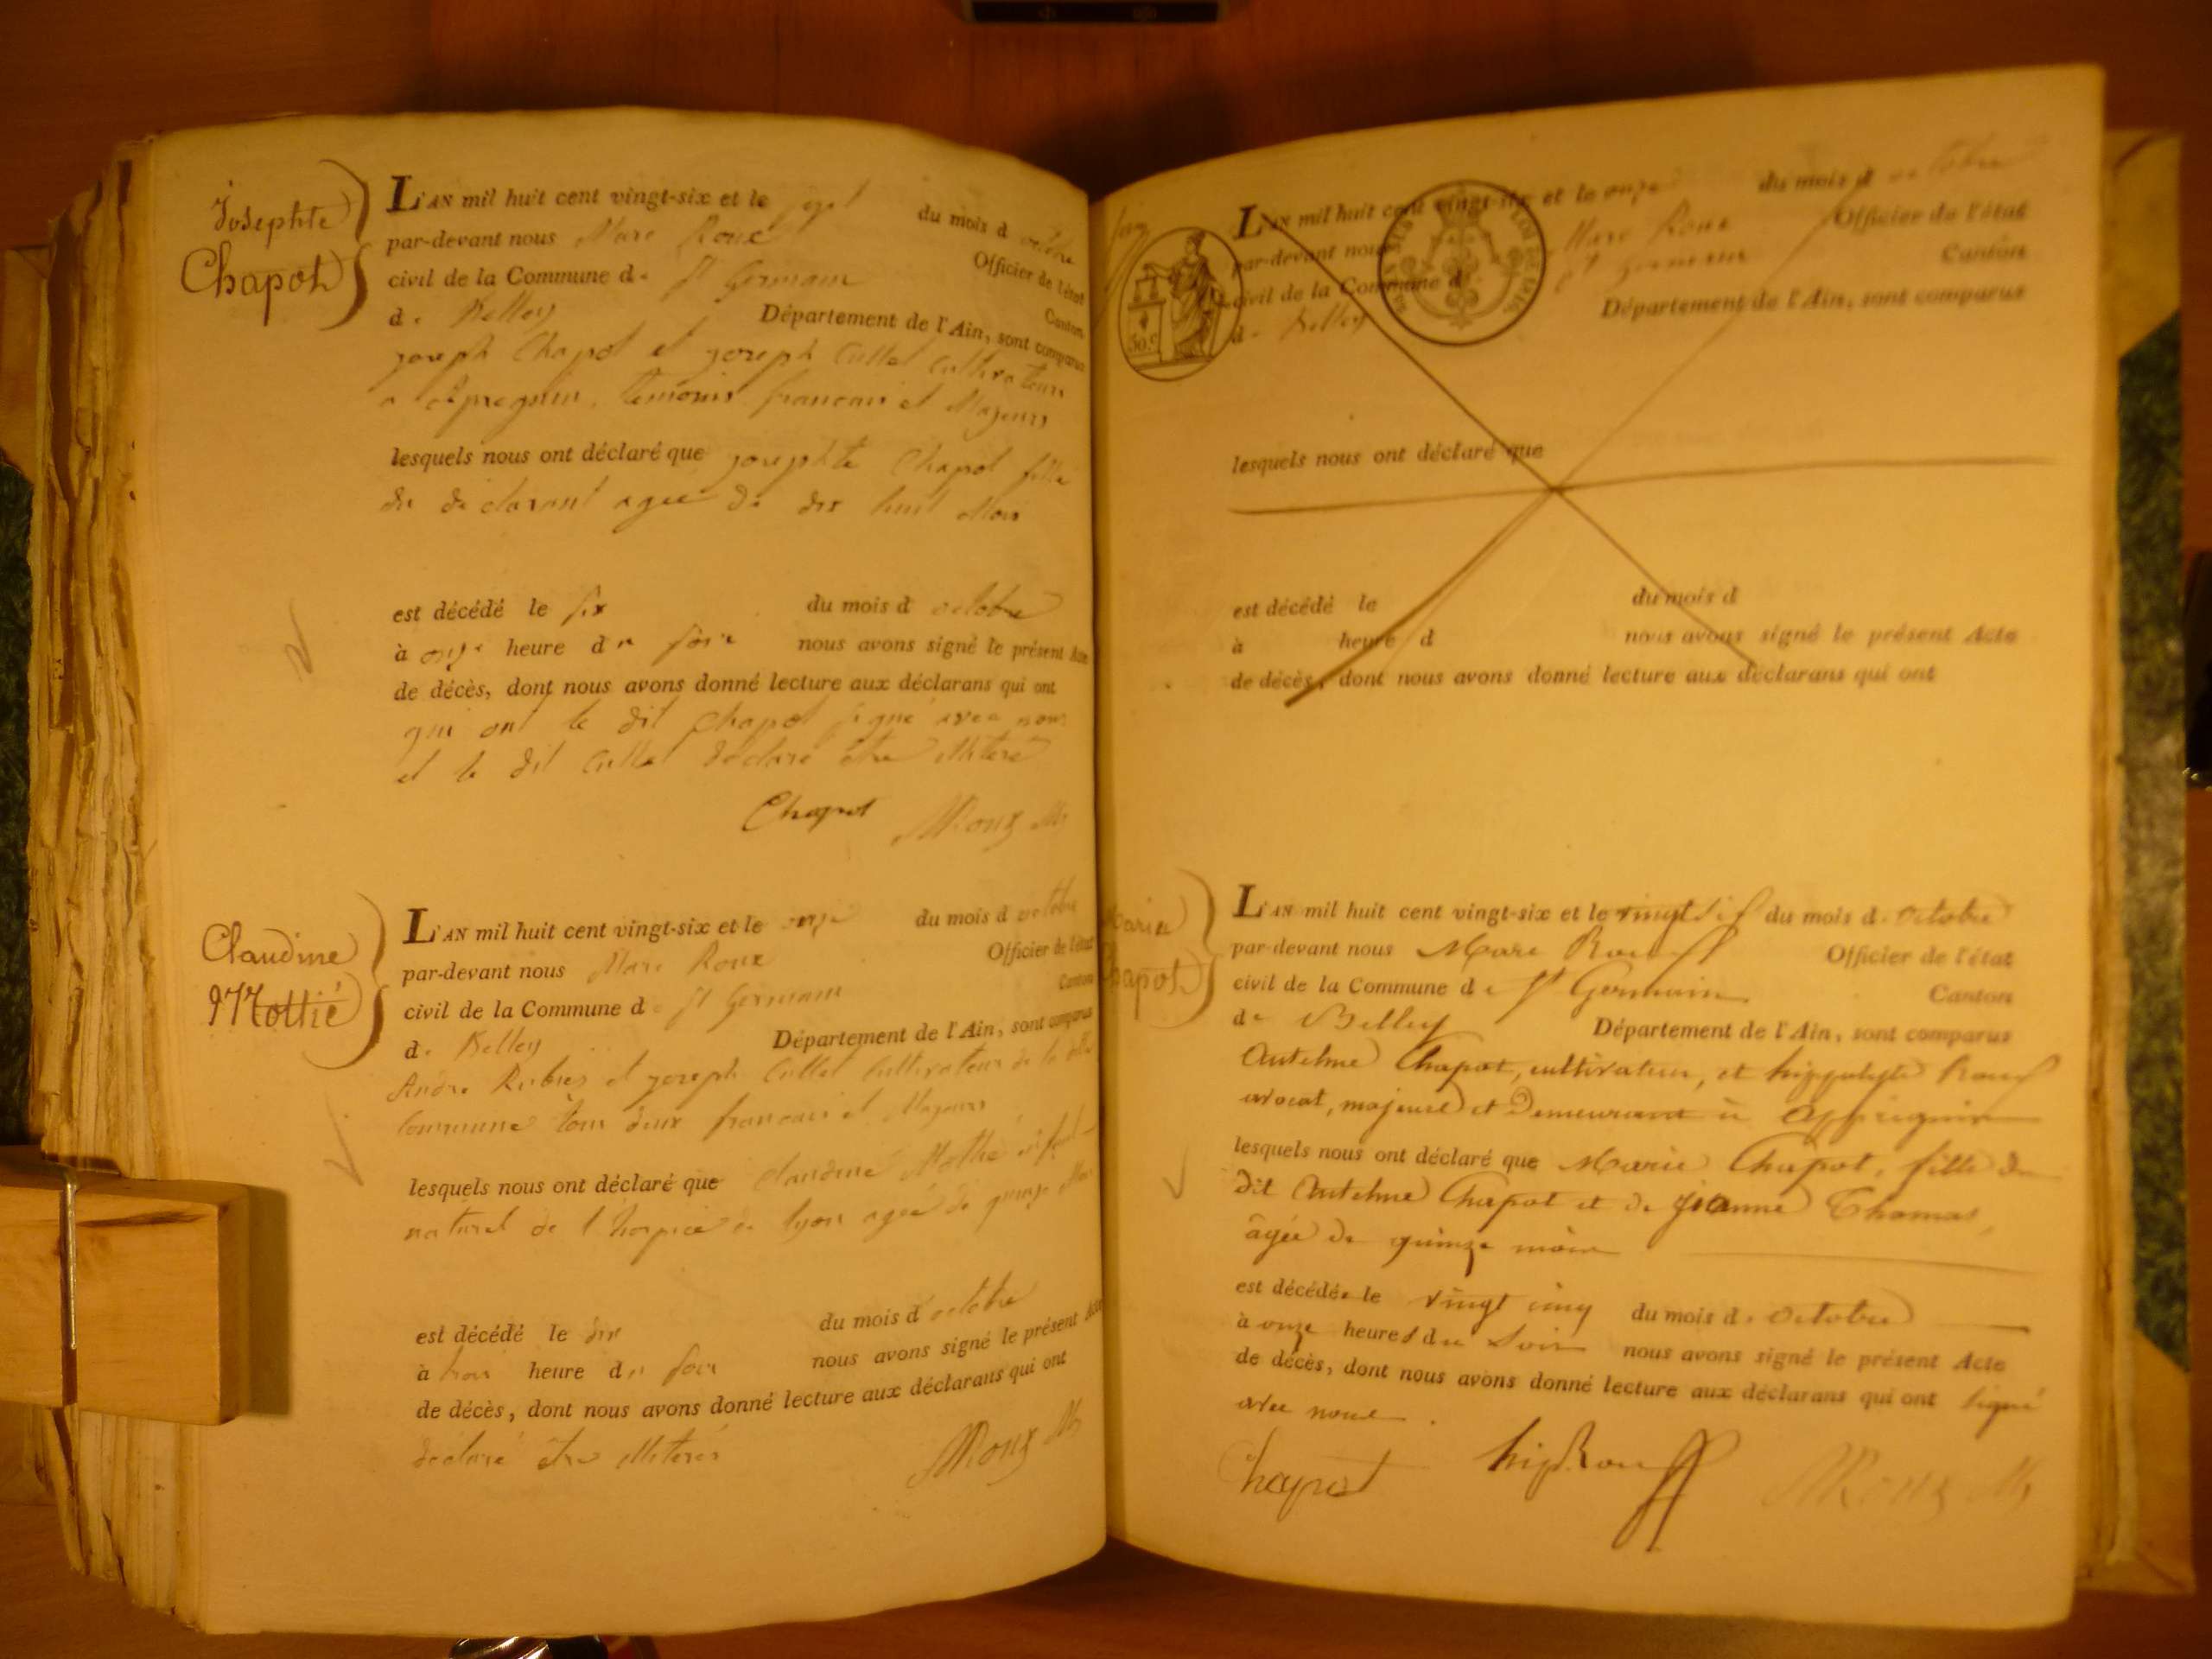 Josephte
Chapot
L'AN mil huit cent vingt-six et le sept du mois d octobre
par-devant nous Marc Roux Officier de l'état
civil de la Commune de St Germain Canton
de Belley Département de l'Ain, sont comparus
joseph Chapot et joseph Cullet Cultivateurs
a témoins francais et Majeurs
lesquels nous ont déclaré que josephte Chapot fille
du declarant agee de dix huit Mois
est décédé le six du mois d octobre
à onze heure du soir nous avons signé le présent Acte
de décès, dont nous avons donné lecture aux déclarans qui ont
qui ont le dit Chapot signé avec nous
et le dit Cullet déclaré etre illiteré
Chapot MRoux Mr
Claudine
Mottié
L'AN mil huit cent vingt-six et le onze du mois d octobre
par-devant nous Marc Roux Officier de l'état
civil de la Commune de St Germain Canton
de Belley Département de l'Ain, sont comparus
André et joseph Cullet Cultivateurs de la
Commune tous deux francais et Majeurs
lesquels nous ont déclaré que Claudine Mottié
naturel de l'hospice de lyon agée de quinze Mois
est décédé le dix du mois d octobre
à trois heure du soir nous avons signé le présent Acte
de décès, dont nous avons donné lecture aux déclarans qui ont
déclaré être illiterés
MRoux Mr
L'AN mil huit cent vingt-six et le onze du mois d octobre
par-devant nous Marc Roux Officier de l'état
civil de la Commune d St Germain Canton
de Belley Département de l'Ain, sont comparus
50.c
lesquels nous ont déclaré que
est décédé le du mois d
à heure d nous avons signé le présent Acte
de décès, dont nous avons donné lecture aux déclarans qui ont
Marie
Chapot
L'AN mil huit cent vingt-six et le vingt six du mois d. octobre
par-devant nous Marc Roux Officier de l'état
civil de la Commune de St Germain Canton
de Belley Département de l'Ain, sont comparus
Antelme Chapot, cultivateur, et hippolyte Roux
avocat, majeurs et Demeurant à Appregnin
lesquels nous ont déclaré que Marie Chapot, fille du
dit Antelme Chapot et de jeanne Thomas,
âgée de quinze mois
est décédée le vingt cinq du mois d. octobre
à onze heures du soir nous avons signé le présent Acte
de décès, dont nous avons donné lecture aux déclarans qui ont signé
avec nous.
Chapot hip Roux MRoux Mr